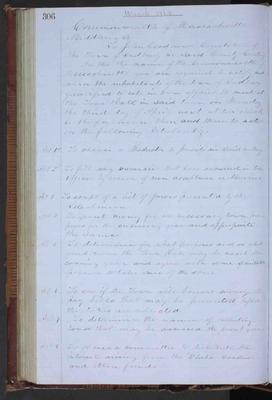 306
Commonwealth of Massachusetts
Middlesex ss
To John Goodnow Constable of
the Town of Sudbury in said County Greeting
In the name of the Commonwealth
of Massachusetts you are required to notify and
warn the inhabitants of the Town of Sudbury
qualified to vote in town affairs to meet at
the Town Hall in said town on Monday
the day of April next at
then and there to act
on the following Articles viz
Art 1st To choose a Moderator to preside in said meeting
Art 2 To fill any vacancies that have occurred in Town
Officers by reason of non acceptance or otherwise
Art 3 To accept of a list of Jurors presented by the
Selectmen
Art 4 To grant money for all necessary town pur
poses for the ensuing year and appropriate
the same
Art 5 To determine for what purpose and on what
terms the Town Hall may be used the
coming year and agree with some suitable
person to take care of the same
Art 6 To see if the Town will borrow money to
pay bills that may be presented before
the taxes are collected
Art 7 To determine the manner of collecting
taxes that may be assessed the present year
Art 8 To choose a committee to distribute the
interest arising from the
and other funds